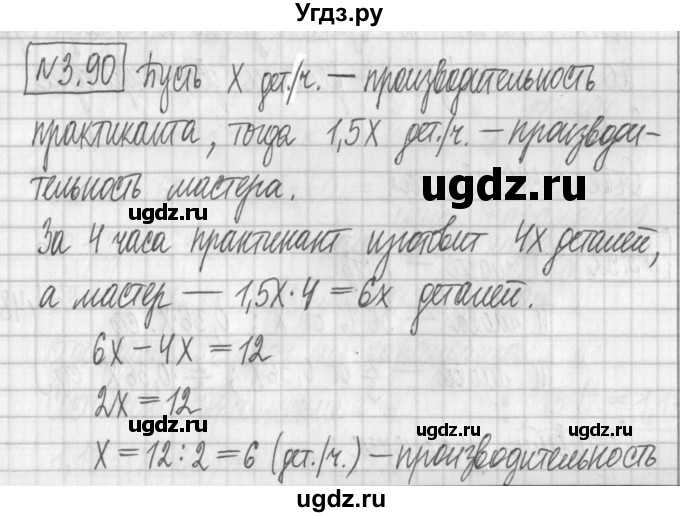 Угдз.ру
№3.90 Пусть х дет./ч. — производительность
практиканта, тогда 1,5х дет./ч. — производи-
ugdz.ru
тельность мастера.
ugdz.ru ugdz.ru
За 4 часа практикант изготовит 4х деталей,
а мастер — 1,5х·4 = 6х деталей.
6х – 4х = 12
2х = 12
ugdz.ru ugdz.ru
х = 12 : 2 = 6 (дет./ч.) — производительность
ugdz.ru